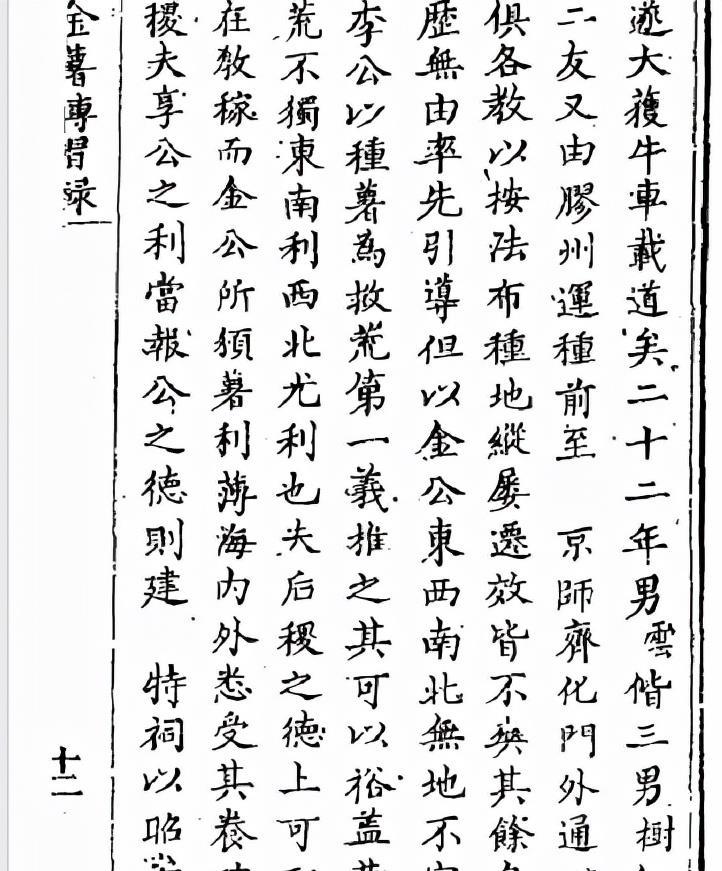 遂大獲牛車載道矣二十二年男雲偕三男樹
二友又由膠州運種前至　京師齊化門外通
俱各教以按法布種地縱屢遷效皆不爽其餘
歷無由率先引導但以金公東西南北無地不
李公以種薯為救荒第一義推之其可以裕蓋
荒不獨東南利西北尤利也夫后稷之德上可
在教稼而金公所頒薯利薄海内外悉受其養
稷夫享公之利當報公之德則建　特祠以昭
金薯傳習録
十二